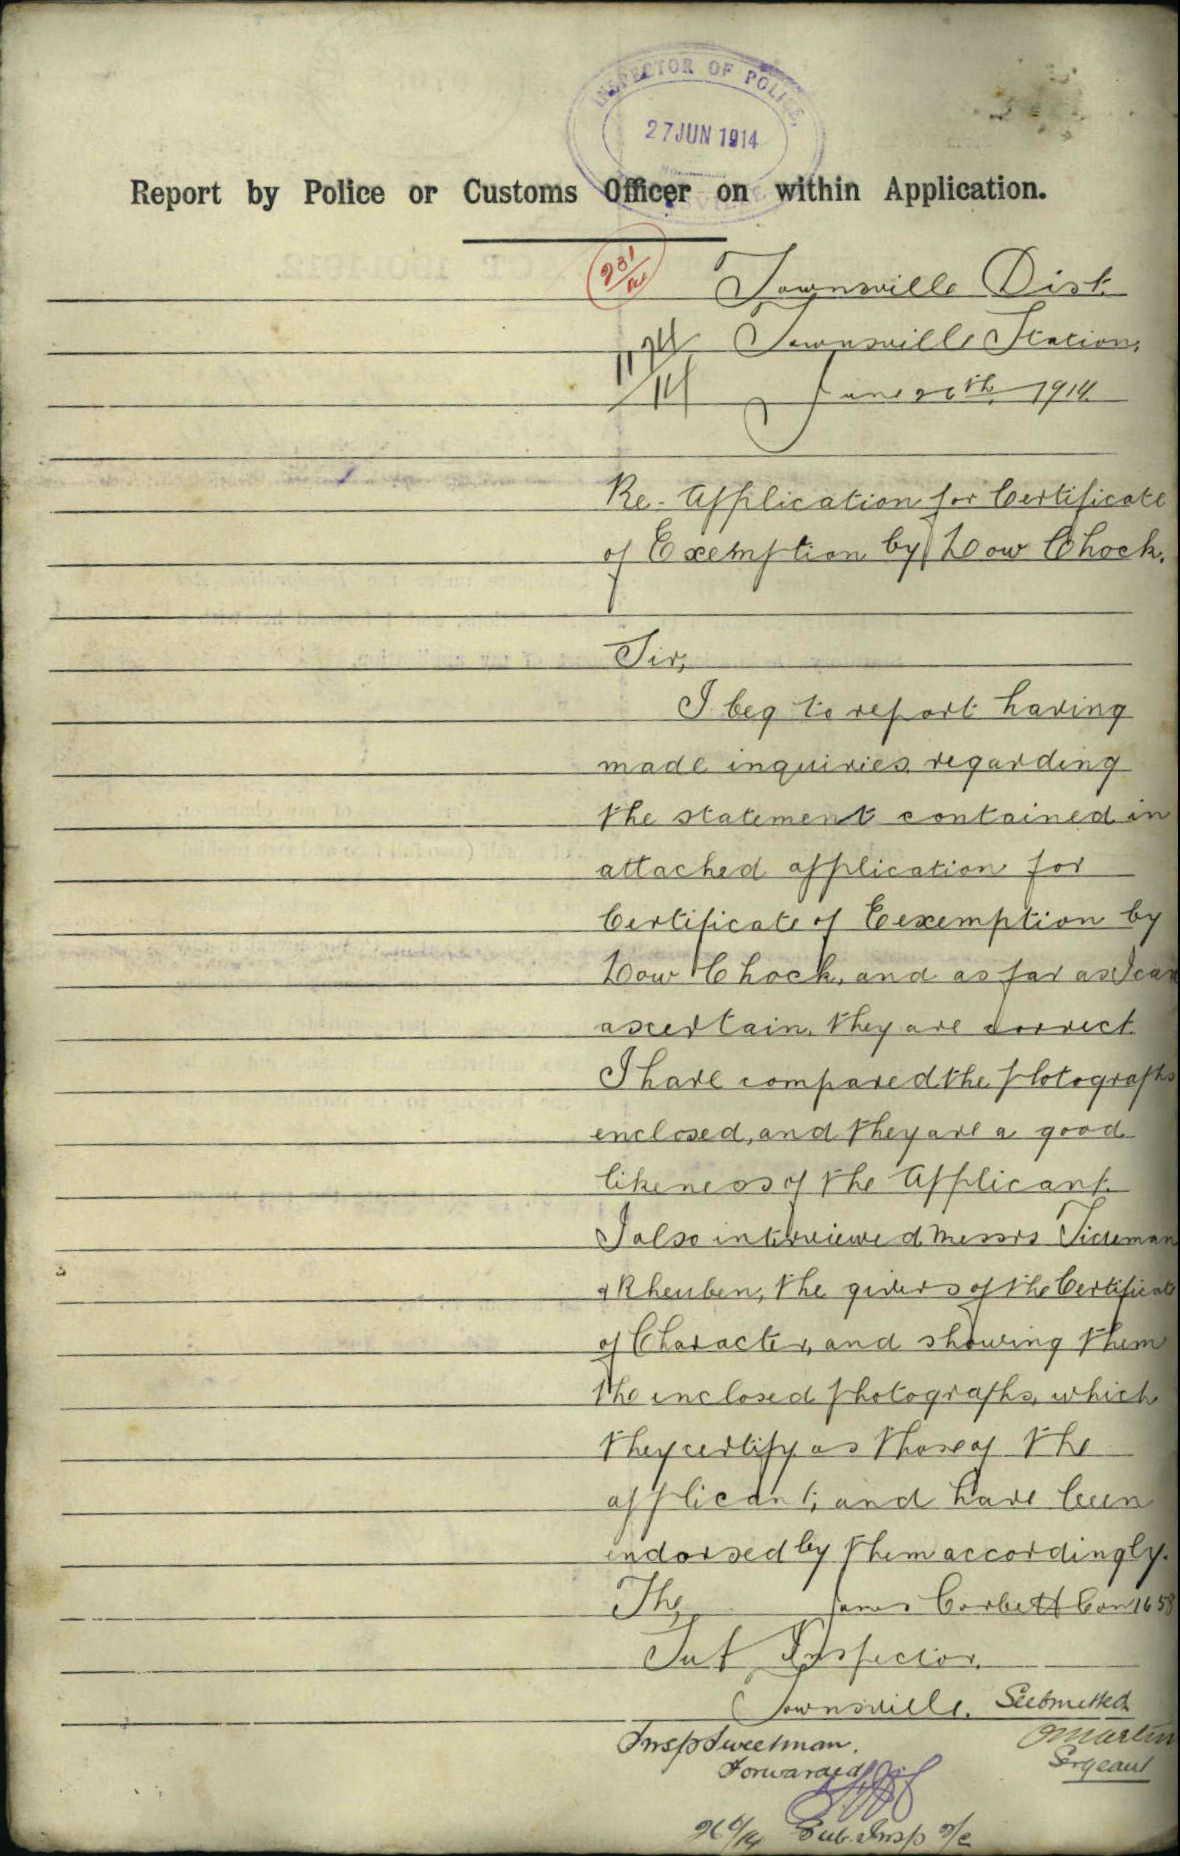 INSPECTOR OF POLICE,
27 JUN 1914
Report by Police or Customs Officer on within Application.
231
Townsville Dist.
1174/14 Townsville Station,
June 26th 1914
Re- Application for Certificate
of Exemption by Low Chock.
Sir,
I beg to report having
made inquiries regarding
the statement contained in
attached application for
Certificate of Eexemption by
Low Chock, and as far as I can
ascertain, they are correct.
I have compared the photographs
enclosed, and they are a good
likeness of the Applicant.
I also interviewed Messrs Tideman
& Rheuben, the givers of the Certificate
of Character, and showing them
the enclosed photographs, which
they certify as those of the
applicant; and have been
endorsed by them accordingly.
The, James Corbett Con 1658
Sub Inspector.
Townsville. Submitted
Insp Sweetman. Martin
Forwarded Sergeant
26/6/14 Sub. Insp